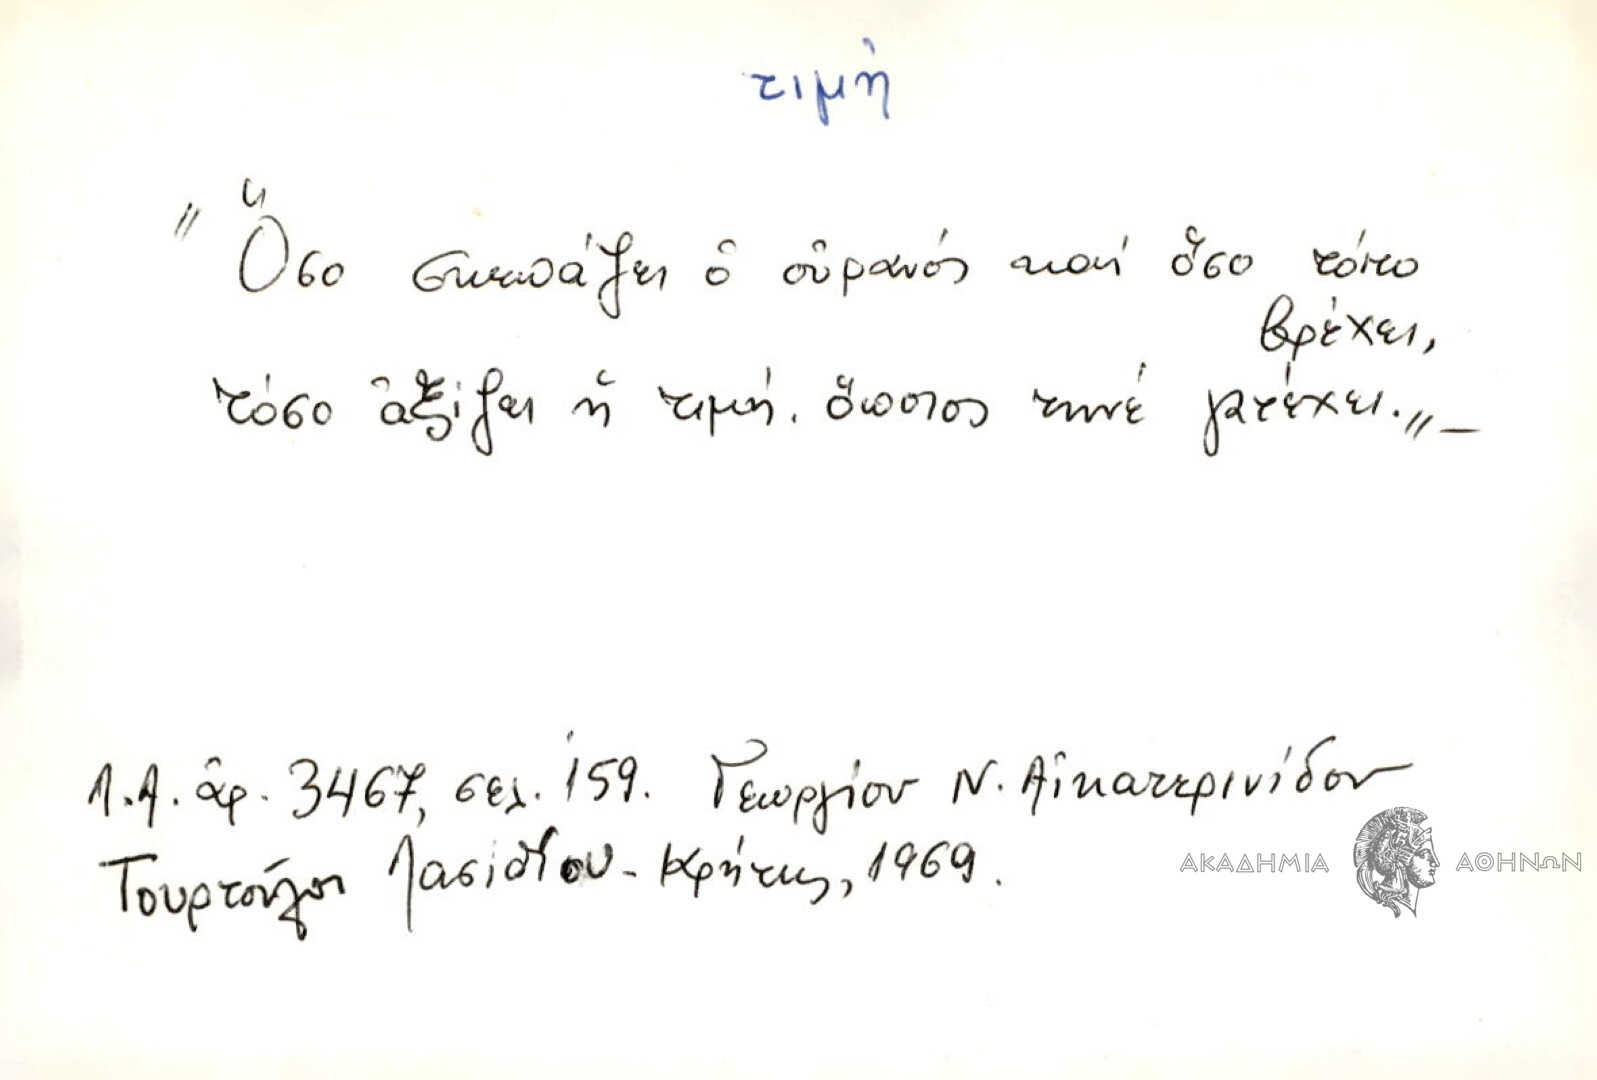 τιμή
"Ὅσο σκεπάζει ὁ οὐρανός καί ὅσο τόπο
βρέχει,
τόσο ἀξίζει ἡ τιμή. ὅποιος τηνέ κατέχει."—
Λ.Α. ἀρ. 3467, σελ. 159. Γεωργίου Ν. Αἰκατερινίδου
Τουρτοῦλοι Λασιθίου - Κρήτης, 1969.
ΑΚΑΔΗΜΙΑ ΑΘΗΝΩΝ